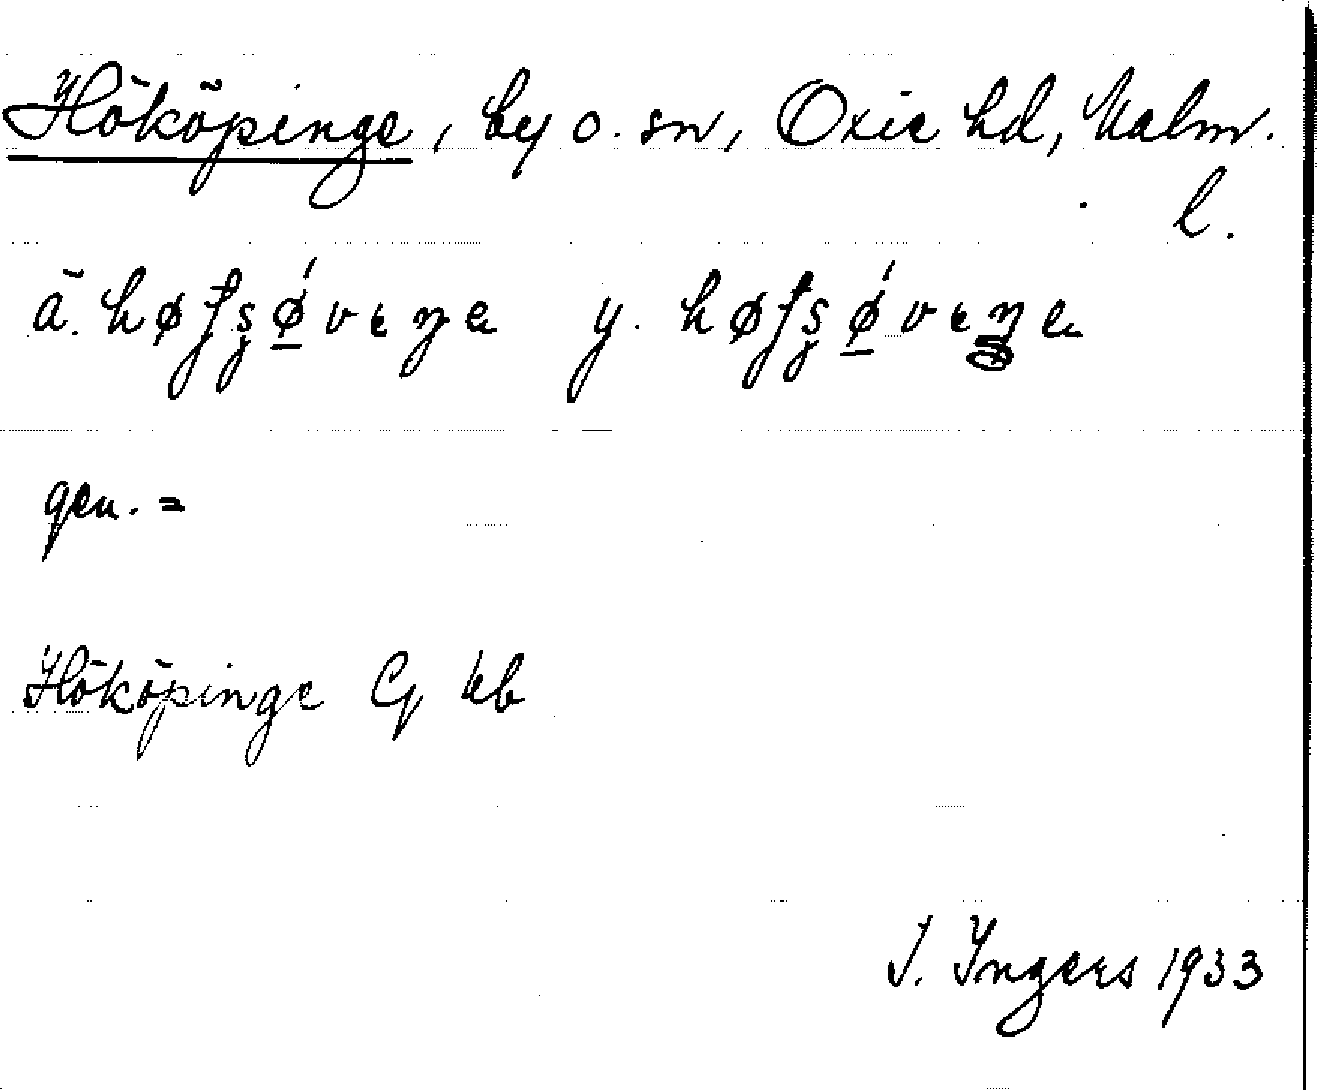 Hököpinge, by o. sn, Oxie hd, Malm.
l.
ä. høʃʂǿvɛŋə y. høʃʂǿvɛŋə
gen. =
Hököpinge Cg kb
I. Ingers 1933